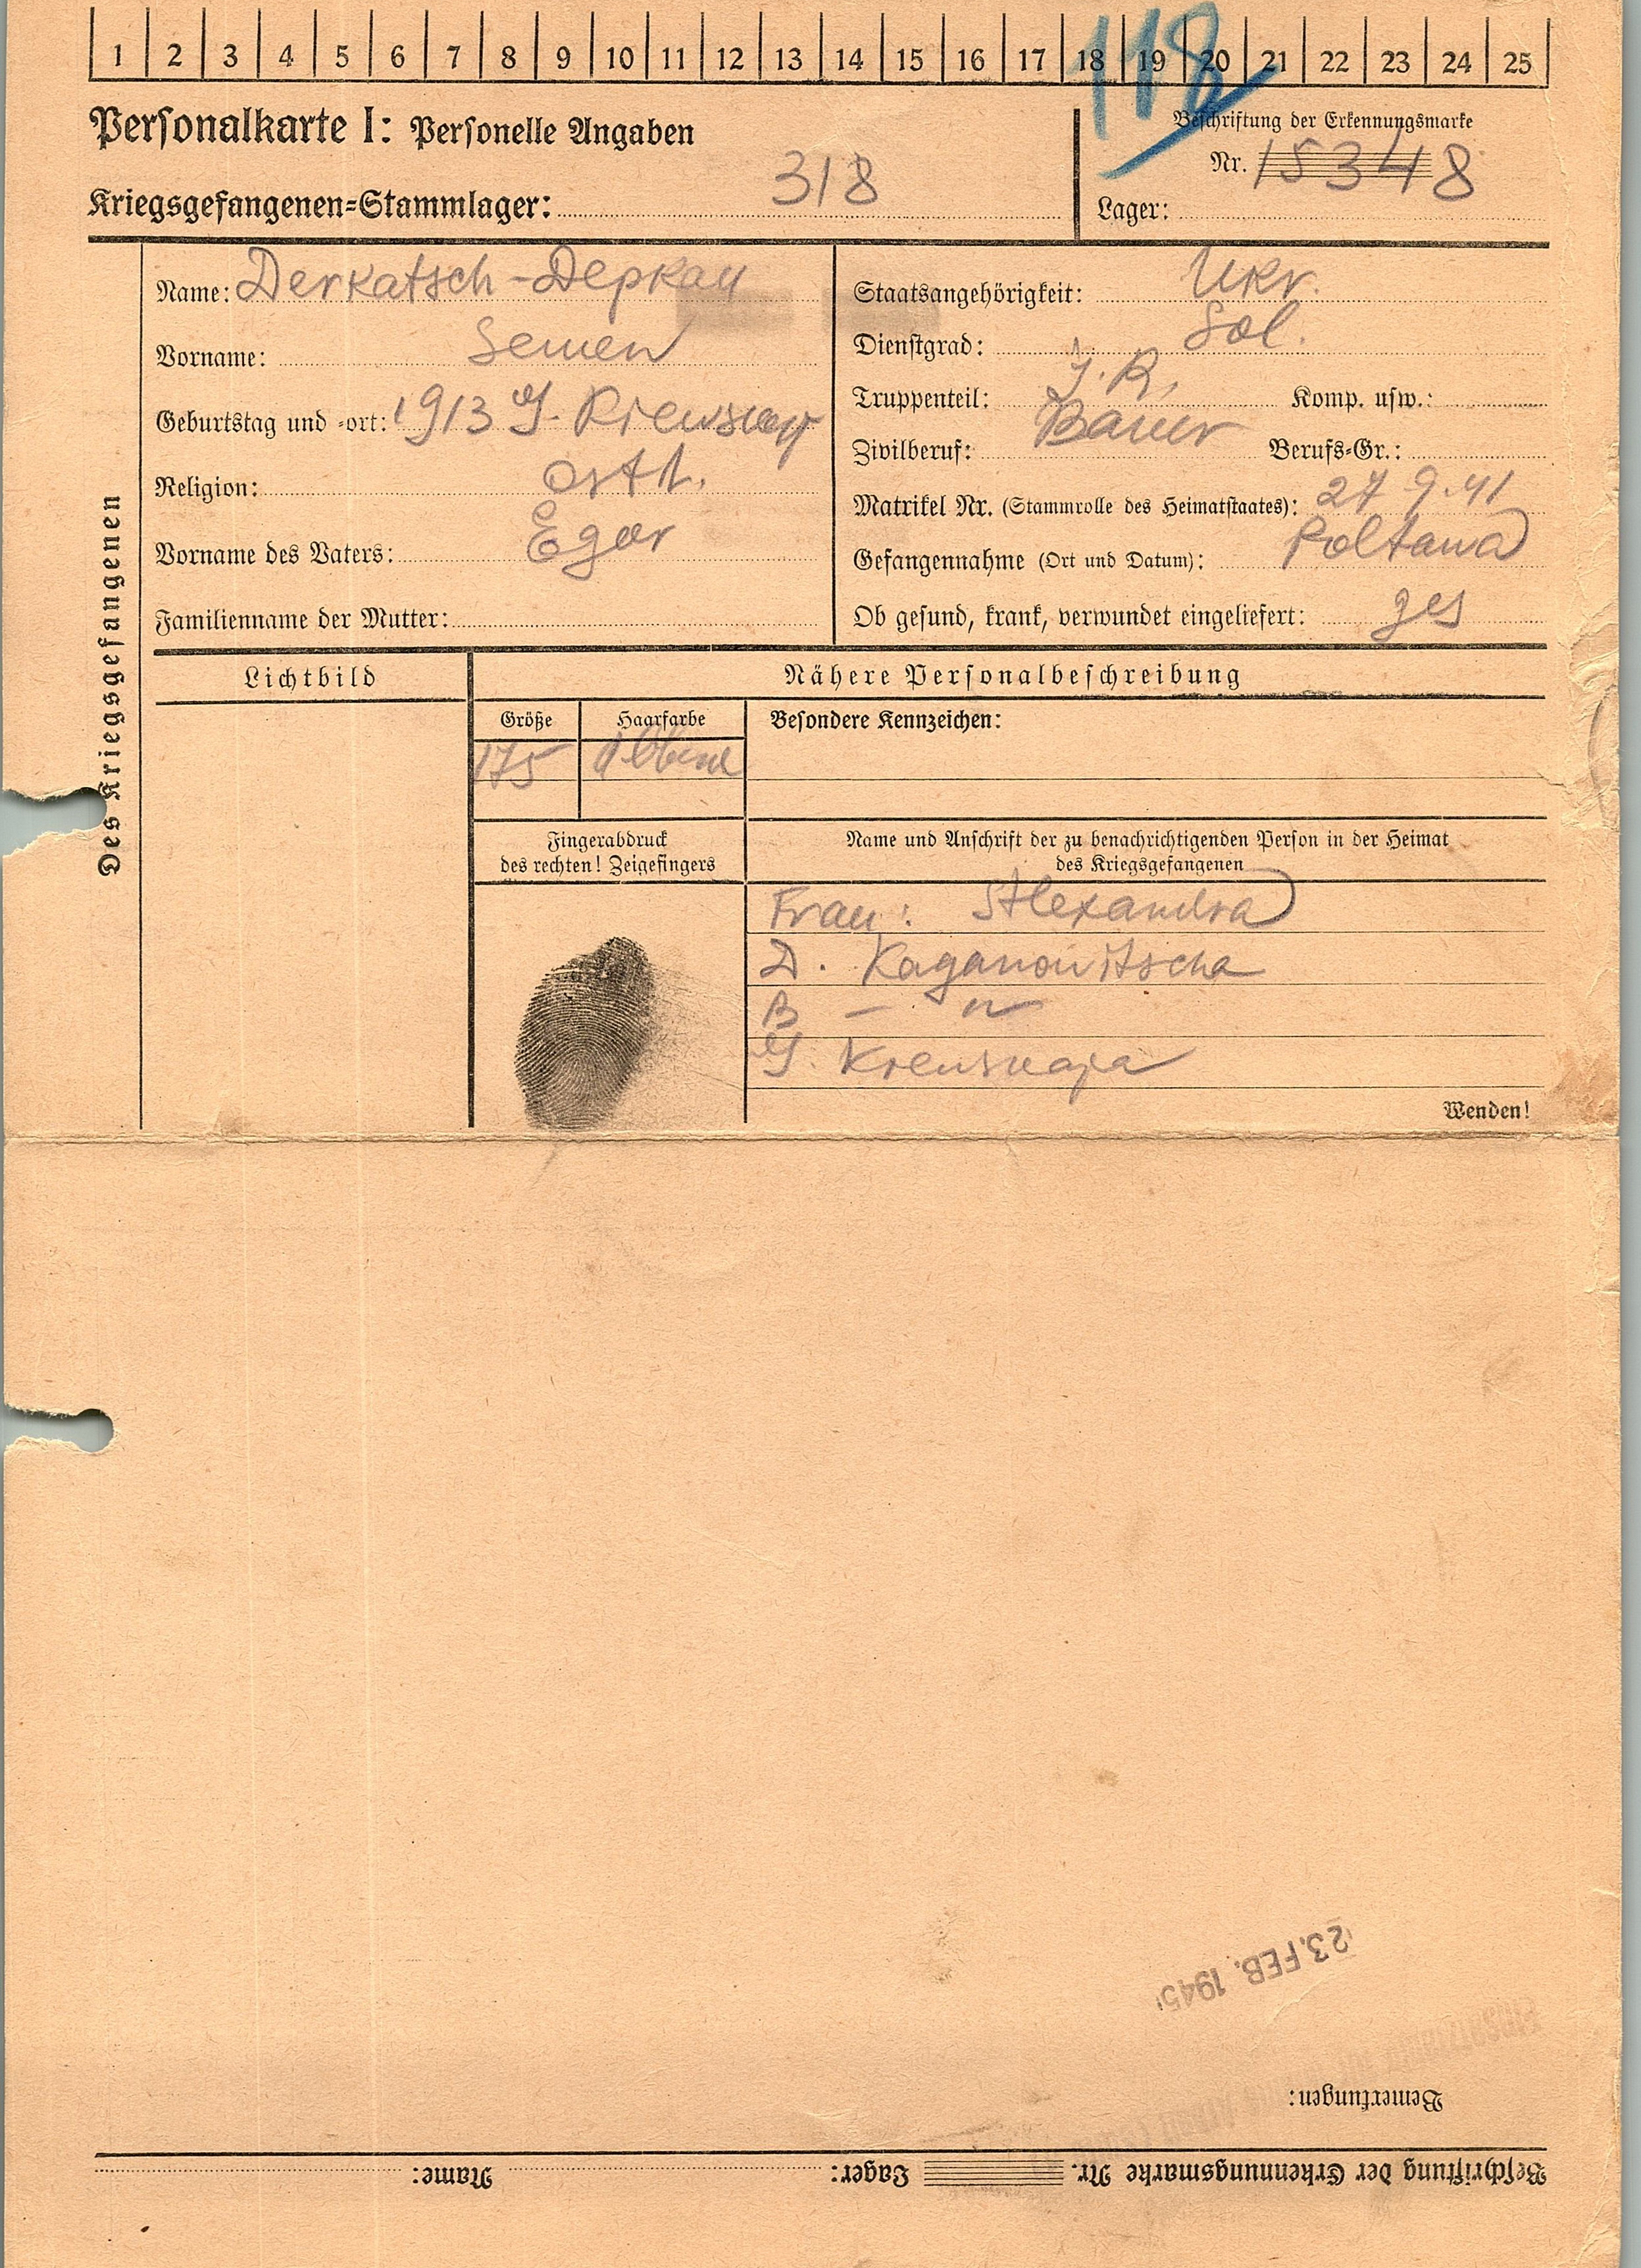 1 2 3 4 5 6 7 8 9 10 11 12 13 14 15 16 17 18 19 20 21 22 23 24 25
118
Personalkarte I: Personelle Angaben
Beschriftung der Erkennungsmarke
Nr. 15348
Kriegsgefangenen-Stammlager: 318
Lager:
Des Kriegsgefangenen
Name: Derkatsch-Деркач
Vorname: Semen
Geburtstag und -ort: 1913 G.
Religion: orth.
Vorname des Vaters: Egor
Familienname der Mutter:
Staatsangehörigkeit: Ukr.
Dienstgrad: Sol.
Truppenteil: J. R. Komp. usw.:
Zivilberuf: Bauer Berufs-Gr.:
Matrikel Nr. (Stammrolle des Heimatstaates): 27 9.41
Gefangennahme (Ort und Datum): Poltawa
Ob gesund, krank, verwundet eingeliefert: ges
Lichtbild
Nähere Personalbeschreibung
Größe Haarfarbe Besondere Kennzeichen:
175
Fingerabdruck
des rechten! Zeigefingers
Name und Anschrift der zu benachrichtigenden Person in der Heimat
des Kriegsgefangenen
Frau: Alexandra
D. Kaganowitscha
R — "
G.
Wenden!
23. FEB. 1945
Bemerkungen:
Beschriftung der Erkennungsmarke Nr. Lager: Name: